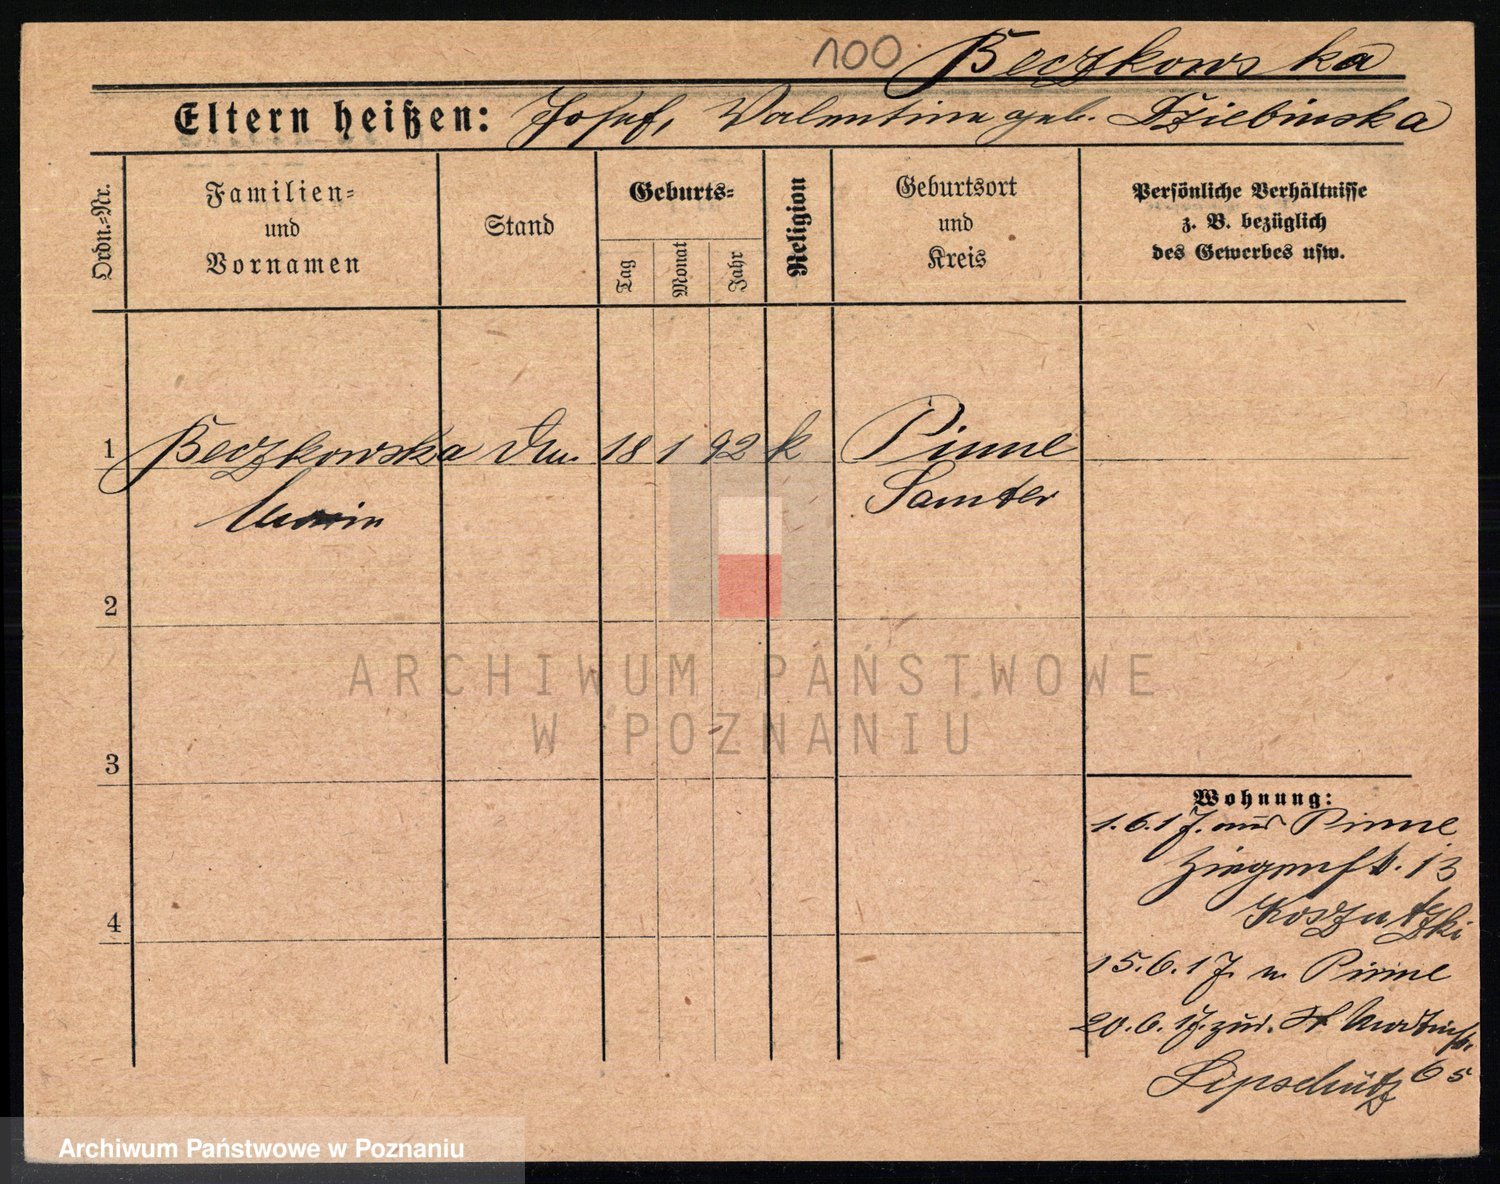 100 Beczkowska
Eltern heißen: Josef, Valentine geb. Dziebinska
Ordn.=Nr.
Familien=
und
Vornamen
Stand
Geburts=
Tag
Monat
Jahr
Religion
Geburtsort
und
Kreis
Persönliche Verhältnisse
z. B. bezüglich
des Gewerbes usw.
1 Beczkowska 18 1 92 k Pinne
Maria Samter
2
3
4
Wohnung:
1.6.17. aus Pinne
Ziegenstr. 13
Koszutzki
15.6.17. n. Pinne
20.6.17. zur. St. Martinstr.
Lipschütz 65
ARCHIWUM PAŃSTWOWE
W POZNANIU
Archiwum Państwowe w Poznaniu